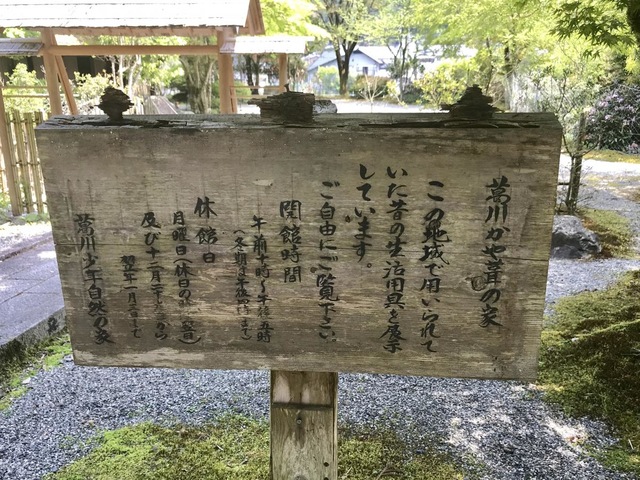 萱川かやぶきの家
この地域で用いられて
いた昔の生活用具を展示
しています。
ご自由にご覧下さい
開館時間
午前十時〜午後五時
(冬期は午後四時まで)
休館日
月曜日(休日の 翌日)
及び十二月二十 から
翌年一月 まで
少年自然の家